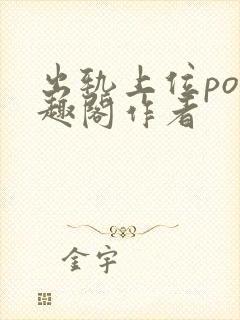 出轨上位po
趣阁作者
金宇